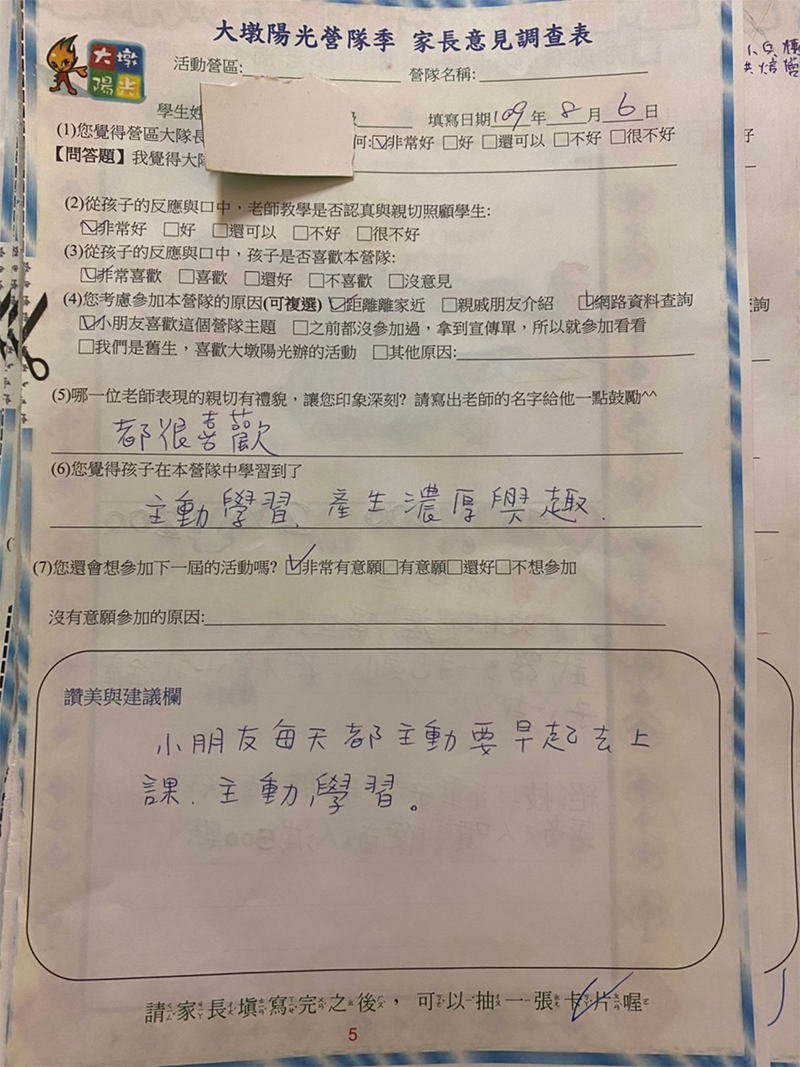 大墩陽光營隊季 家長意見調查表
大墩
陽光
活動營區:
營隊名稱:
學生姓
填寫日期109年8月6日
(1)您覺得營區大隊長
何:☑非常好 □好 □還可以 □不好 □很不好
【問答題】我覺得大隊
(2)從孩子的反應與口中，老師教學是否認真與親切照顧學生:
☑非常好 □好 □還可以 □不好 □很不好
(3)從孩子的反應與口中，孩子是否喜歡本營隊:
☑非常喜歡 □喜歡 □還好 □不喜歡 □沒意見
(4)您考慮參加本營隊的原因(可複選) ☑距離離家近 □親戚朋友介紹 ☑網路資料查詢
☑小朋友喜歡這個營隊主題 □之前都沒參加過，拿到宣傳單，所以就參加看看
□我們是舊生，喜歡大墩陽光辦的活動 □其他原因:
(5)哪一位老師表現的親切有禮貌，讓您印象深刻? 請寫出老師的名字給他一點鼓勵^^
都很喜歡
(6)您覺得孩子在本營隊中學習到了
主動學習、產生濃厚興趣.
(7)您還會想參加下一屆的活動嗎? ☑非常有意願□有意願□還好□不想參加
沒有意願參加的原因:
讚美與建議欄
小朋友每天都主動要早起去上
課、主動學習。
請家長填寫完之後，可以抽一張卡片喔
5